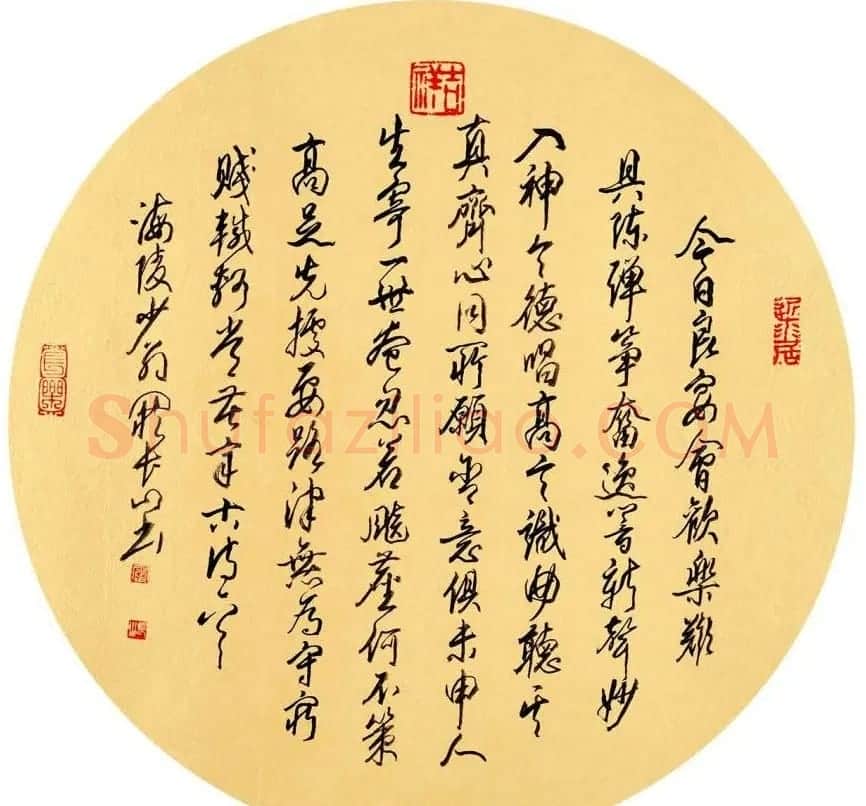 吉祥
今日良宴會歡樂難
具陳彈箏奮逸響新聲妙
入神令德唱高言識曲聽其
真齊心同所願含意俱未申人
生寄一世奄忽若飈塵何不策
高足先據要路津無為守窮
賤轗軻常苦辛古詩一首
海陵少翁長山書
Shufaziliao.COM